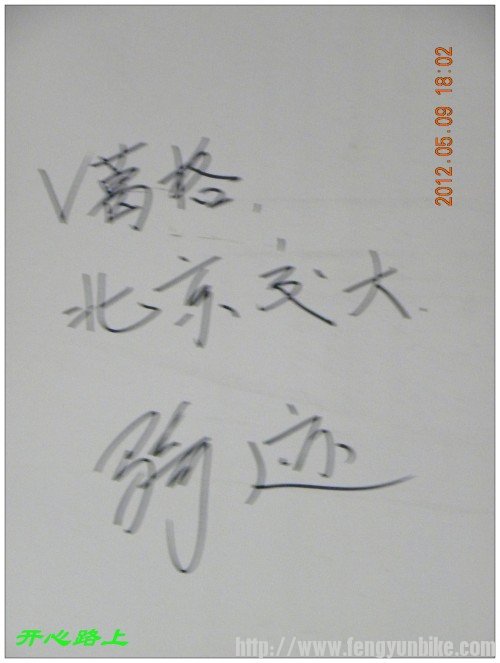 2012.05.09 18:02
V葛格.
北京交大.
骑迹
开心路上
http://www.fengyunbike.com